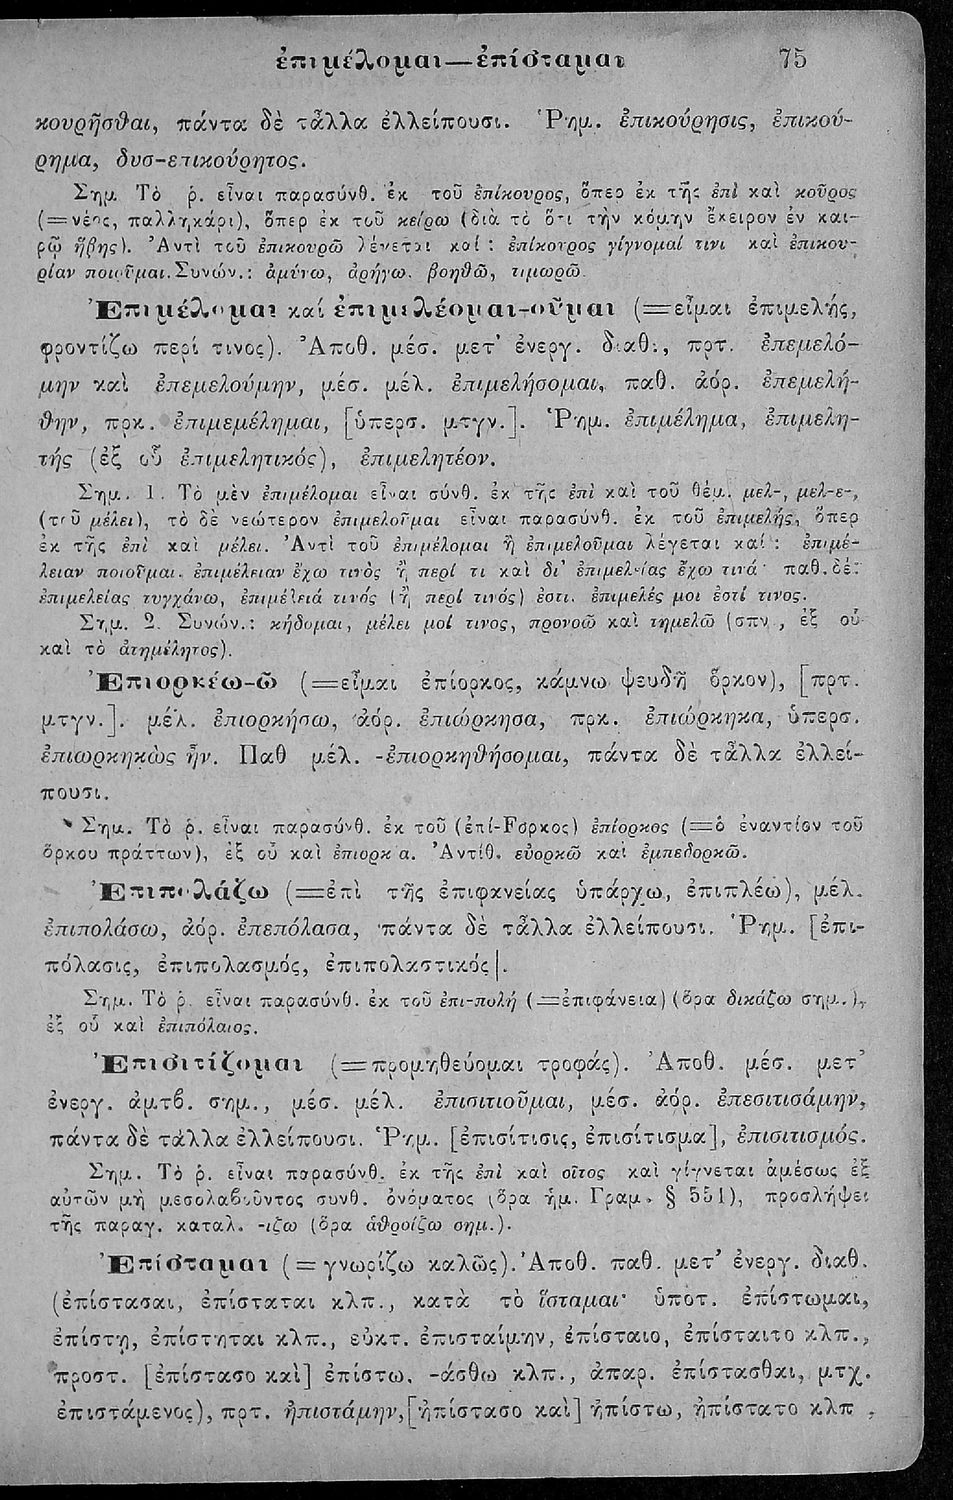 ἐπιμέλομαι—ἐπίσταμαι 75
κουρῆσθαι, πάντα δὲ τἆλλα ἐλλείπουσι. Ῥημ. ἐπικούρησις, ἐπικού-
ρημα, δυσ-επικούρητος.
Σημ. Τὸ ῥ. εἶναι παρασύνθ. ἐκ τοῦ ἐπίκουρος, ὅπερ ἐκ τῆς ἐπὶ καὶ κοῦρος
(=νέος, παλληκάρι), ὅπερ ἐκ τοῦ κείρω (διὰ τὸ ὅτι τὴν κόμην ἔκειρον ἐν και-
ρῷ ἥβης). Ἀντὶ τοῦ ἐπικουρῶ λέγεται καί: ἐπίκουρος γίγνομαί τινι καὶ ἐπικου-
ρίαν ποιοῦμαι. Συνών.: ἀμύνω, ἀρήγω. βοηθῶ, τιμωρῶ.
Ἐπιμέλομαι καί ἐπιμελέομαι-οῦμαι (=εἶμαι ἐπιμελής,
φροντίζω περί τινος). Ἀποθ. μέσ. μετ' ἐνεργ. διαθ., πρτ. ἐπεμελό-
μην καὶ ἐπεμελούμην, μέσ. μέλ. ἐπιμελήσομαι, παθ. ἀόρ. ἐπεμελή-
θην, πρκ. ἐπιμεμέλημαι, [ὑπερσ. μτγν.]. Ῥημ. ἐπιμέλημα, ἐπιμελη-
τής (ἐξ οὗ ἐπιμελητικός), ἐπιμελητέον.
Σημ. 1. Τὸ μὲν ἐπιμέλομαι εἶναι σύνθ. ἐκ τῆς ἐπὶ καὶ τοῦ θέμ. μελ-, μελ-ε-,
(τοῦ μέλει), τὸ δὲ νεώτερον ἐπιμελοῦμαι εἶναι παρασύνθ. ἐκ τοῦ ἐπιμελής, ὅπερ
ἐκ τῆς ἐπὶ καὶ μέλει. Ἀντὶ τοῦ ἐπιμέλομαι ἢ ἐπιμελοῦμαι λέγεται καί: ἐπιμέ-
λειαν ποιοῦμαι. ἐπιμέλειαν ἔχω τινὸς ἢ περί τι καὶ δι' ἐπιμελείας ἔχω τινά· παθ. δέ:
ἐπιμελείας τυγχάνω, ἐπιμέλειά τινός (ἢ περί τινός) ἐστι. ἐπιμελές μοι ἐστί τινος.
Σημ. 2. Συνών.: κήδομαι, μέλει μοί τινος, προνοῶ καὶ τημελῶ (σπν., ἐξ οὗ
καὶ τὸ ἀτημέλητος).
Ἐπιορκέω-ῶ (=εἶμαι ἐπίορκος, κάμνω ψευδῆ ὅρκον), [πρτ.
μτγν.]. μέλ. ἐπιορκήσω, ἀόρ. ἐπιώρκησα, πρκ. ἐπιώρκηκα, ὑπερσ.
ἐπιωρκηκὼς ἦν. Παθ μέλ. -ἐπιορκηθήσομαι, πάντα δὲ τἆλλα ἐλλεί-
πουσι.
Σημ. Τὸ ῥ. εἶναι παρασύνθ. ἐκ τοῦ (ἐπί-Fορκος) ἐπίορκος (=ὁ ἐναντίον τοῦ
ὅρκου πράττων), ἐξ οὗ καὶ ἐπιορκία. Ἀντίθ. εὐορκῶ καὶ ἐμπεδορκῶ.
Ἐπιπολάζω (=ἐπὶ τῆς ἐπιφανείας ὑπάρχω, ἐπιπλέω), μέλ.
ἐπιπολάσω, ἀόρ. ἐπεπόλασα, πάντα δὲ τἆλλα ἐλλείπουσι. Ῥημ. [ἐπι-
πόλασις, ἐπιπολασμός, ἐπιπολαστικός].
Σημ. Τὸ ῥ. εἶναι παρασύνθ. ἐκ τοῦ ἐπι-πολή (=ἐπιφάνεια) (ὅρα δικάζω σημ.),
ἐξ οὗ καὶ ἐπιπόλαιος.
Ἐπισιτίζομαι (=προμηθεύομαι τροφάς). Ἀποθ. μέσ. μετ'
ἐνεργ. ἀμτβ. σημ., μέσ. μέλ. ἐπισιτιοῦμαι, μέσ. ἀόρ. ἐπεσιτισάμην,
πάντα δὲ τἆλλα ἐλλείπουσι. Ῥημ. [ἐπισίτισις, ἐπισίτισμα], ἐπισιτισμός.
Σημ. Τὸ ῥ. εἶναι παρασύνθ. ἐκ τῆς ἐπὶ καὶ σῖτος καὶ γίγνεται ἀμέσως ἐξ
αὐτῶν μὴ μεσολαβοῦντος συνθ. ὀνόματος (ὅρα ἡμ. Γραμ. § 551), προσλήψει
τῆς παραγ. καταλ. -ιζω (ὅρα ἁθροίζω σημ.).
Ἐπίσταμαι (=γνωρίζω καλῶς). Ἀποθ. παθ. μετ' ἐνεργ. διαθ.
(ἐπίστασαι, ἐπίσταται κλπ., κατὰ τὸ ἵσταμαι· ὑποτ. ἐπίστωμαι,
ἐπίστῃ, ἐπίστηται κλπ., εὐκτ. ἐπισταίμην, ἐπίσταιο, ἐπίσταιτο κλπ.,
προστ. [ἐπίστασο καὶ] ἐπίστω, -άσθω κλπ., ἀπαρ. ἐπίστασθαι, μτχ.
ἐπιστάμενος), πρτ. ἠπιστάμην, [ἠπίστασο καὶ] ἠπίστω, ἠπίστατο κλπ.,